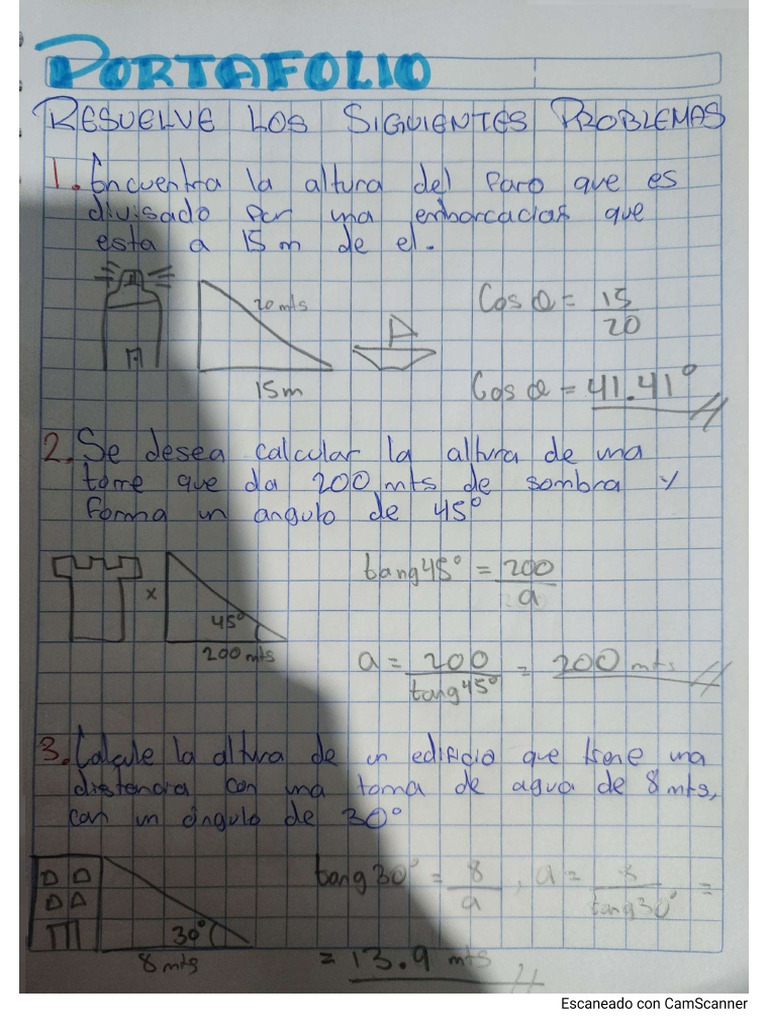 PORTAFOLIO
RESUELVE LOS SIGUIENTES PROBLEMAS
1. Encuentra la altura del Faro que es
divisado por una embarcacion que
esta a 15 m de el.
20 mts
15 m
Cos θ = 15
20
Cos θ = 41.41°
2. Se desea calcular la altura de una
torre que da 200 mts de sombra y
forma un angulo de 45°
x
45°
200 mts
tang 45° = 200
a
a = 200 = 200 mts
tang 45°
3. Calcule la altura de un edificio que tiene una
distancia con una toma de agua de 8 mts,
con un ángulo de 30°
30°
8 mts
tang 30° = 8 , a = 8 =
a tang 30°
= 13.9 mts
Escaneado con CamScanner